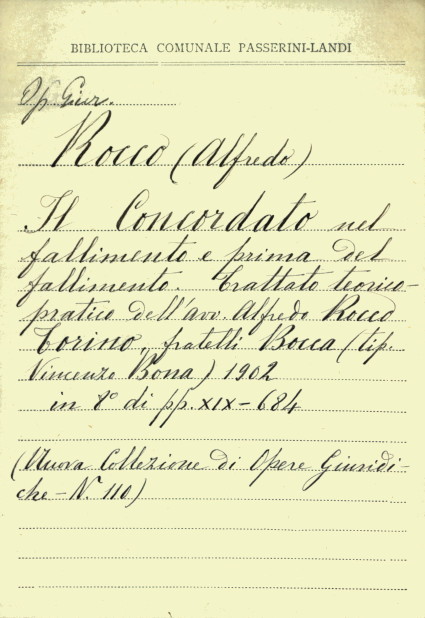 BIBLIOTECA COMUNALE PASSERINI-LANDI
Op Giur.
Rocco (Alfredo)
Il Concordato nel
fallimento e prima del
fallimento. Trattato teorico-
pratico dell'avv. Alfredo Rocco
Torino, fratelli Bocca (tip.
Vincenzo Bona) 1902
in 8° di pp. XIX-684
(Nuova Collezione di Opere Giuridi-
che - N. 110)